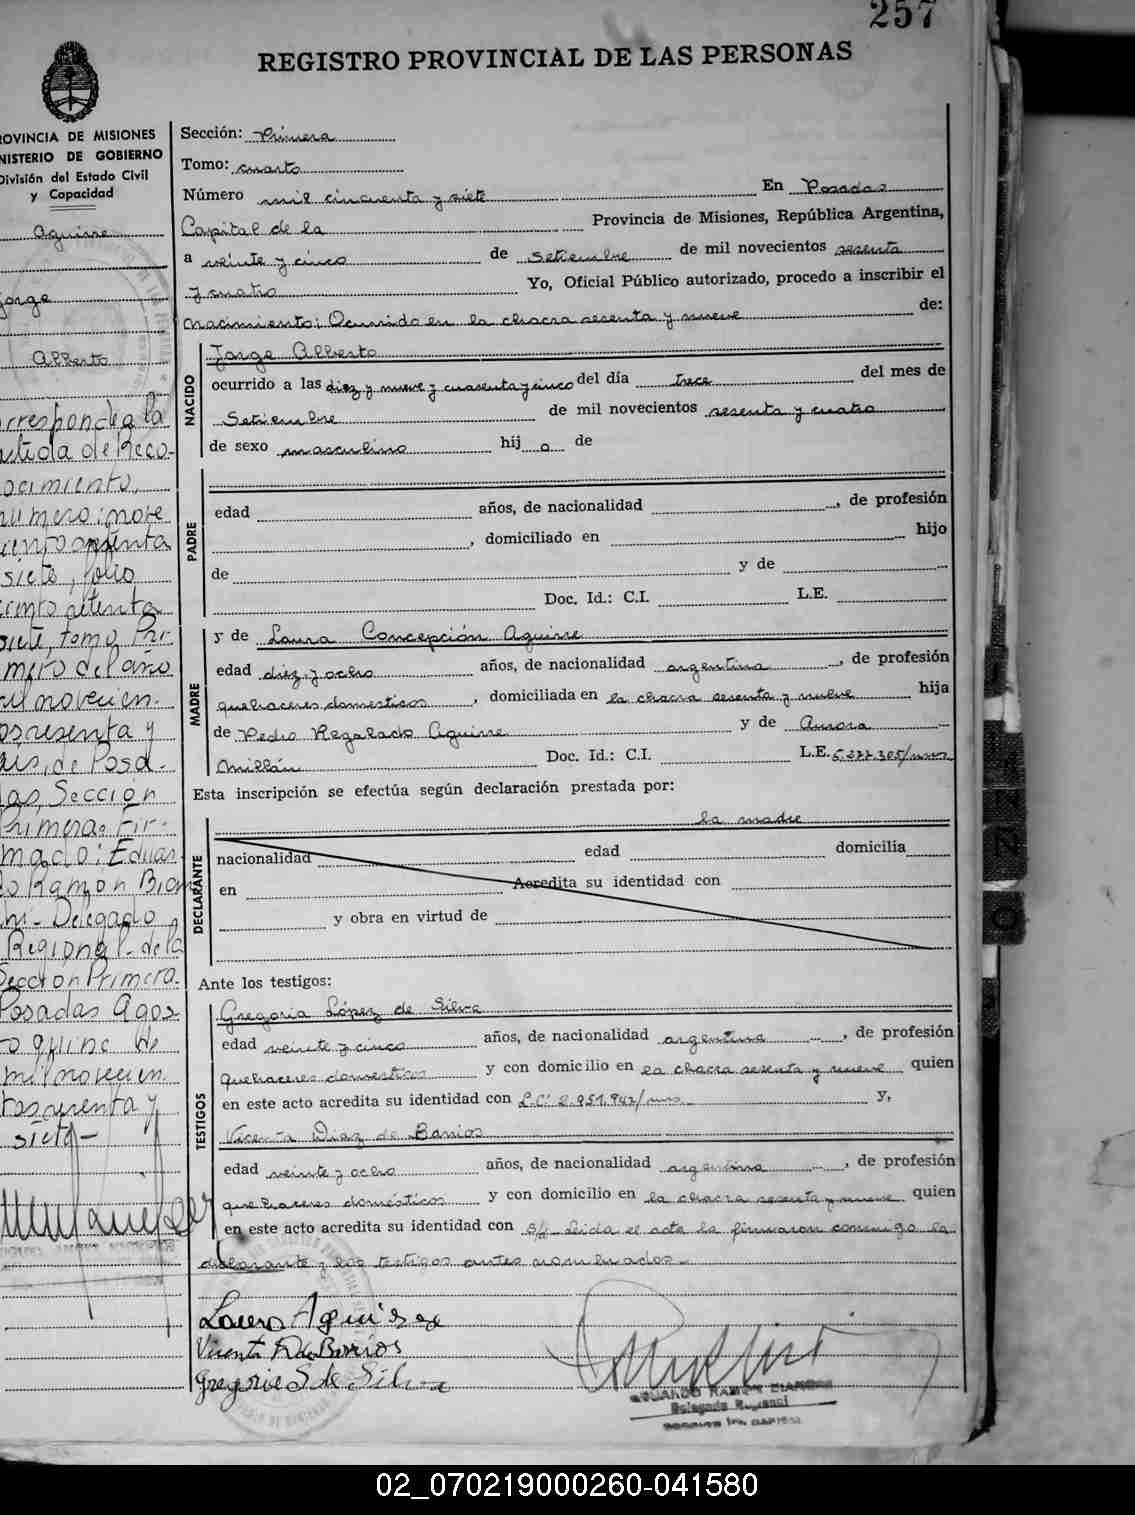 257
REGISTRO PROVINCIAL DE LAS PERSONAS
ROVINCIA DE MISIONES
NISTERIO DE GOBIERNO
División del Estado Civil
y Capacidad
Aguirre
Jorge
Alberto
rresponde a la
rtida de Reco-
ocimiento,
número: nove
cientos
siete, folio
ciento setenta
siete, tomo Pri
mero del año
mil novecien.
os sesenta y
seis, de Posa-
das, Sección
Primera. Fir-
mado: Eduar
do Ramón
Delegado
Regional de la
Sección Primera.
Posadas Agos
to quince de
mil novecien
tos sesenta y
siete-
Sección: Primera
Tomo: cuarto
Número mil cincuenta y siete En Posadas
Capital de la Provincia de Misiones, República Argentina,
a veinte y cinco de setiembre de mil novecientos sesenta
y cuatro Yo, Oficial Público autorizado, procedo a inscribir el
nacimiento: Ocurrido en la chacra sesenta y nueve de:
NACIDO
Jorge Alberto
ocurrido a las diez y nueve y cuarenta y cinco del día trece del mes de
Setiembre de mil novecientos sesenta y cuatro
de sexo masculino hij o de
PADRE
edad años, de nacionalidad , de profesión
, domiciliado en hijo
de y de
Doc. Id.: C.I. L.E.
MADRE
y de Laura Concepción Aguirre
edad diez y ocho años, de nacionalidad argentina , de profesión
quehaceres domesticos , domiciliada en la chacra sesenta y nueve hija
de Pedro Regalado Aguirre y de Aurora
Millán Doc. Id.: C.I. L.E.
Esta inscripción se efectúa según declaración prestada por:
DECLARANTE
la madre
nacionalidad edad domicilia
en Acredita su identidad con
y obra en virtud de
Ante los testigos:
TESTIGOS
Gregoria López de Silva
edad veinte y cinco años, de nacionalidad argentina , de profesión
quehaceres domesticos y con domicilio en la chacra sesenta y nueve quien
en este acto acredita su identidad con L.C. 2.951.942/mrs. y,
Vicenta Diaz de Barrios
edad veinte y ocho años, de nacionalidad argentina , de profesión
quehaceres domésticos y con domicilio en la chacra sesenta y nueve quien
en este acto acredita su identidad con s/j. Leida el acta la firmaron conmigo la
declarante y los testigos antes nombrados.-
Laura Aguirre
Vicenta D de Barrios
Gregoria S de Silva
EDUARDO RAMON
Delegado Regional
02_070219000260-041580